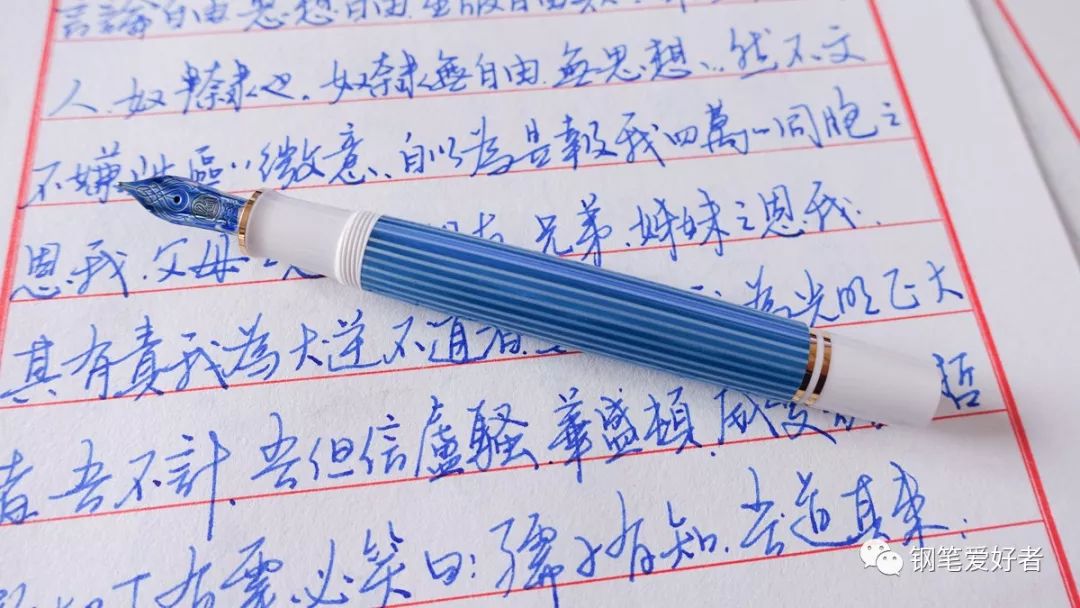 言論自由思想自由出版自由
人.奴隸也.奴隸無自由.無思想.然不文
不嫌此區々微意.自以為是報我四萬々同胞之
恩我.父母之恩 兄弟.姊妹之恩我.
其有責我為大逆不道者. 為光明正大
者吾不計.吾但信盧騷.華盛頓.威 哲
下有靈.必笑曰:孺子有知.吾道其東.
钢笔爱好者